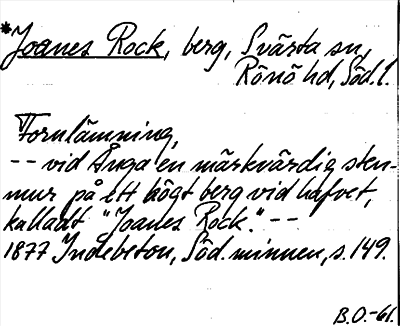 *Joanes Rock, berg, Svärta sn,
Rönö hd, Söd.l.
Fornlämning,
-- vid Ånga en märkvärdig sten-
mur på ett högt berg vid hafvet,
kalladt "Joanes Rock." --
1877 Indebetou, Söd. minnen, s. 149.
B.O.-61.